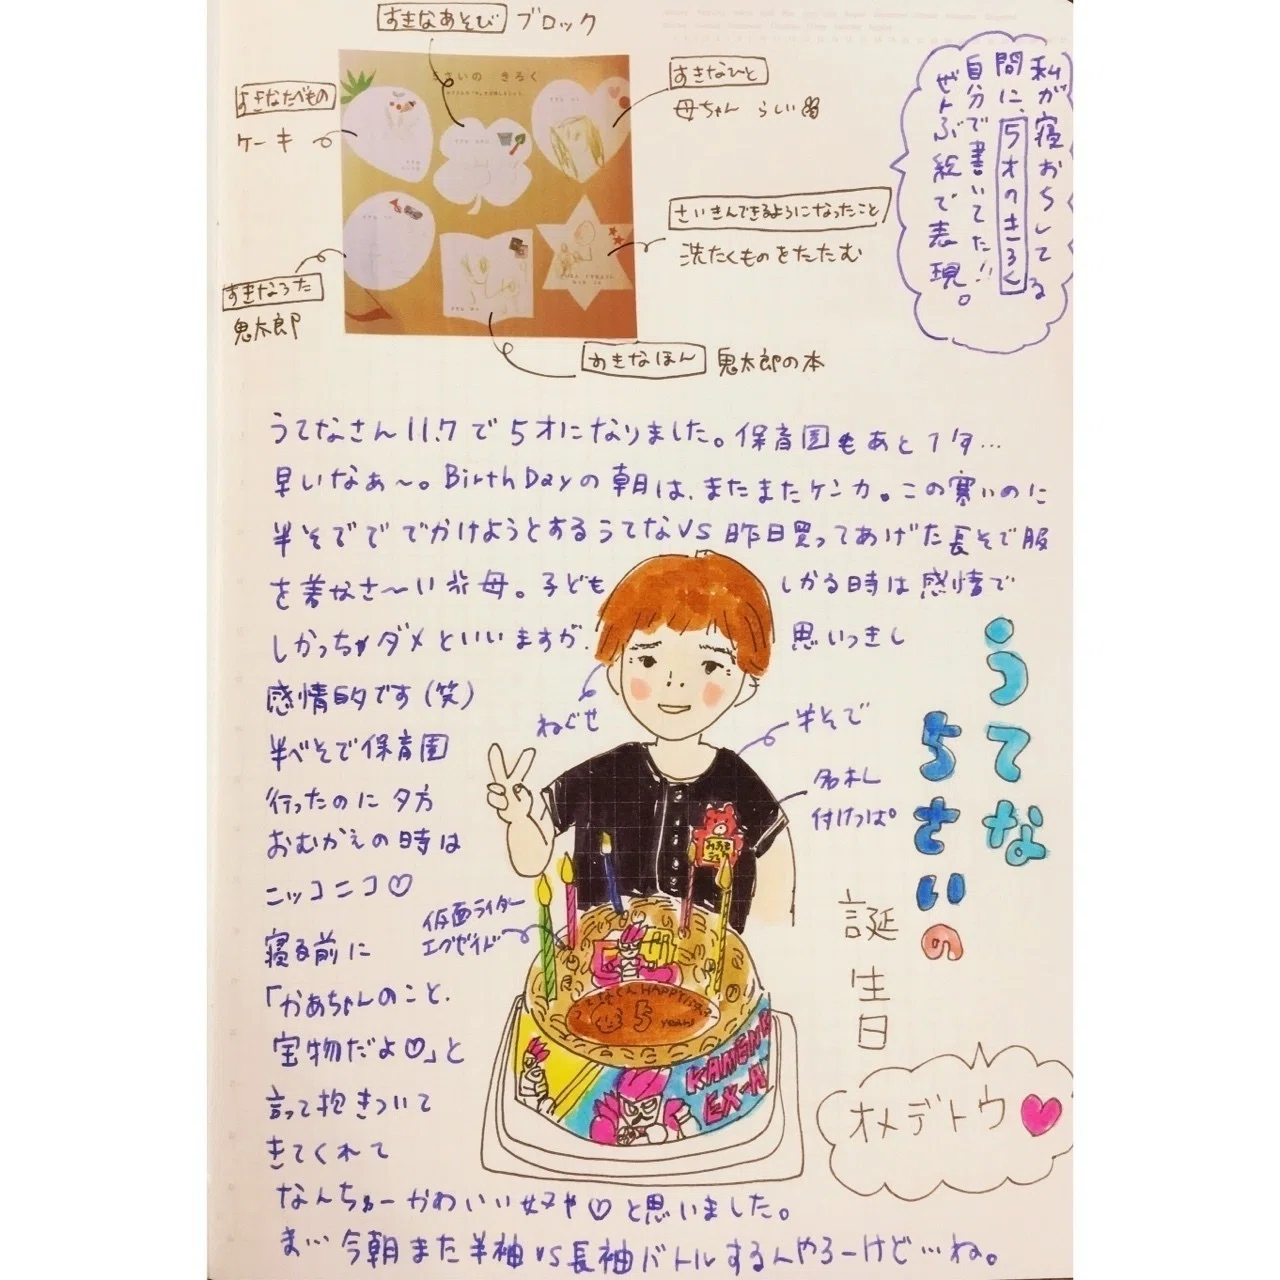 すきなあそび ブロック
すきなたべもの
ケーキ
すきなひと
母ちゃん らしい
さいきんできるようになったこと
洗たくものをたたむ
すきなうた
鬼太郎
すきなほん 鬼太郎の本
5さいの きろく
私が寝おちしてる
間に、5才のきろく
自分で書いてた!!
ぜんぶ絵で表現。
うてなさん11.7で5才になりました。保育園もあと1年…
早いなぁ〜。Birth Dayの朝は、またまたケンカ。この寒いのに
半そでで でかけようとするうてなVS 昨日買ってあげた長そで服
を着なさ〜い 母。子どもしかる時は感情で
しかっちゃダメといいますが、思いっきし
感情的です(笑)
半べそで保育園
行ったのに夕方
おむかえの時は
ニッコニコ♡
寝る前に
「かあちゃんのこと、
宝物だよ♡」と
言って抱きついて
きてくれて
なんちゅーかわいい奴や♡と思いました。
ま…今朝また半袖VS長袖バトルするんやろーけど…ね。
ねぐせ
半そで
名札
付けっぱ。
仮面ライダー
エグゼイド
HAPPY
5
years
KAMEN
EX-A
うてな
5さいの
誕生日
オメデトウ♥